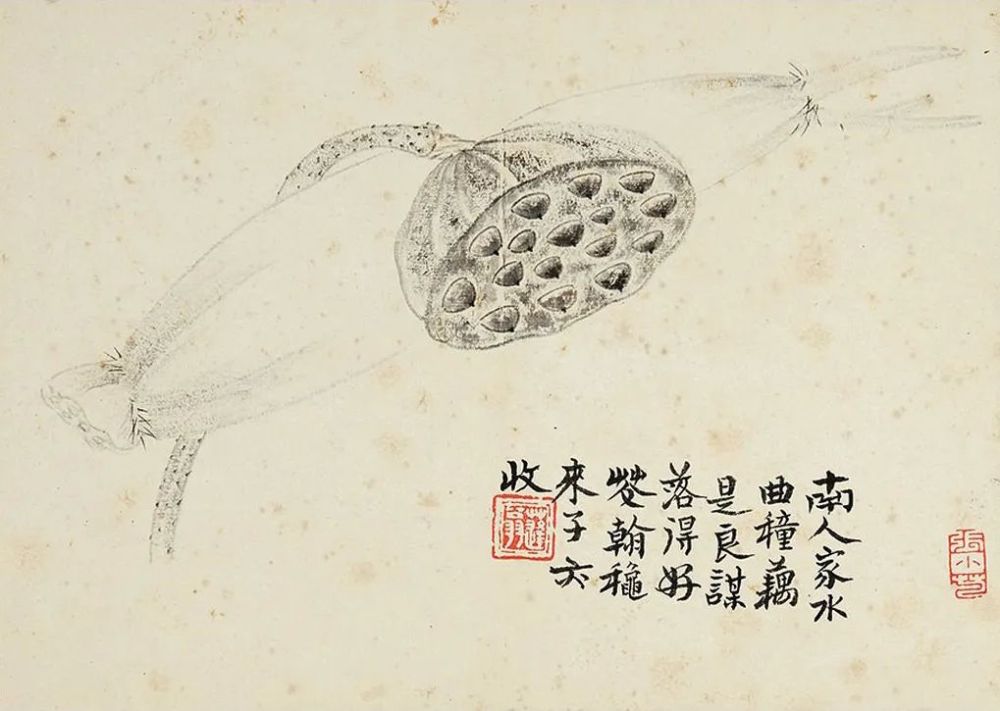 南人家水
曲種藕
是良謀
落得好
花翰穐
來子亦
收